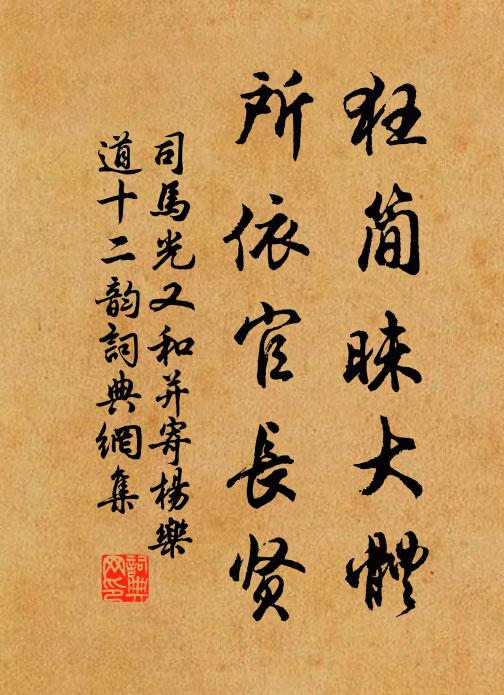 狂简昧大體
所依官長贤
司馬光又和并寄楊樂
道十二韵詞典網集
詞典
网印